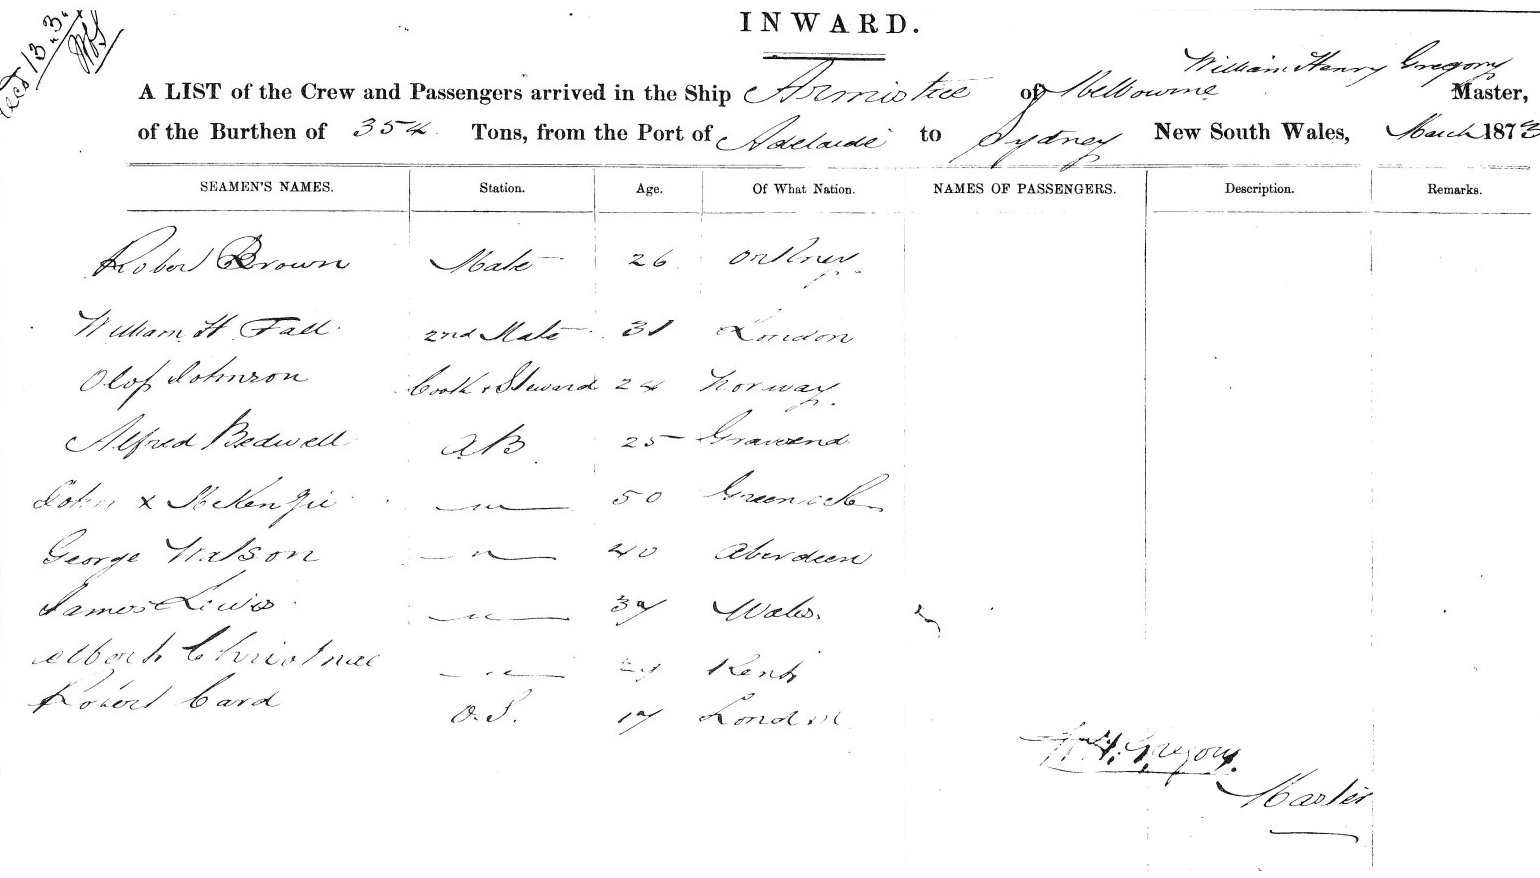 Recd 13.3.
INWARD.
William Henry Gregory
A LIST of the Crew and Passengers arrived in the Ship Armistice of Melbourne Master,
of the Burthen of 354 Tons, from the Port of Adelaide to Sydney New South Wales, March 1873
SEAMEN'S NAMES. Station. Age. Of What Nation. NAMES OF PASSENGERS. Description. Remarks.
Robert Brown Mate 26 Orkney.
William H Fall 2nd Mate 31 London
Olof Johnson Cook & Steward 24 Norway.
Alfred Bedwell AB 25 Gravesend
John x McKenzie — " — 50 Greenock
George Watson — " — 40 Aberdeen
James Lewis — " — 37 Wales.
Albert Christmas — " — Kent
Robert Card O.S. 17 London
W. H. Gregory.
Master